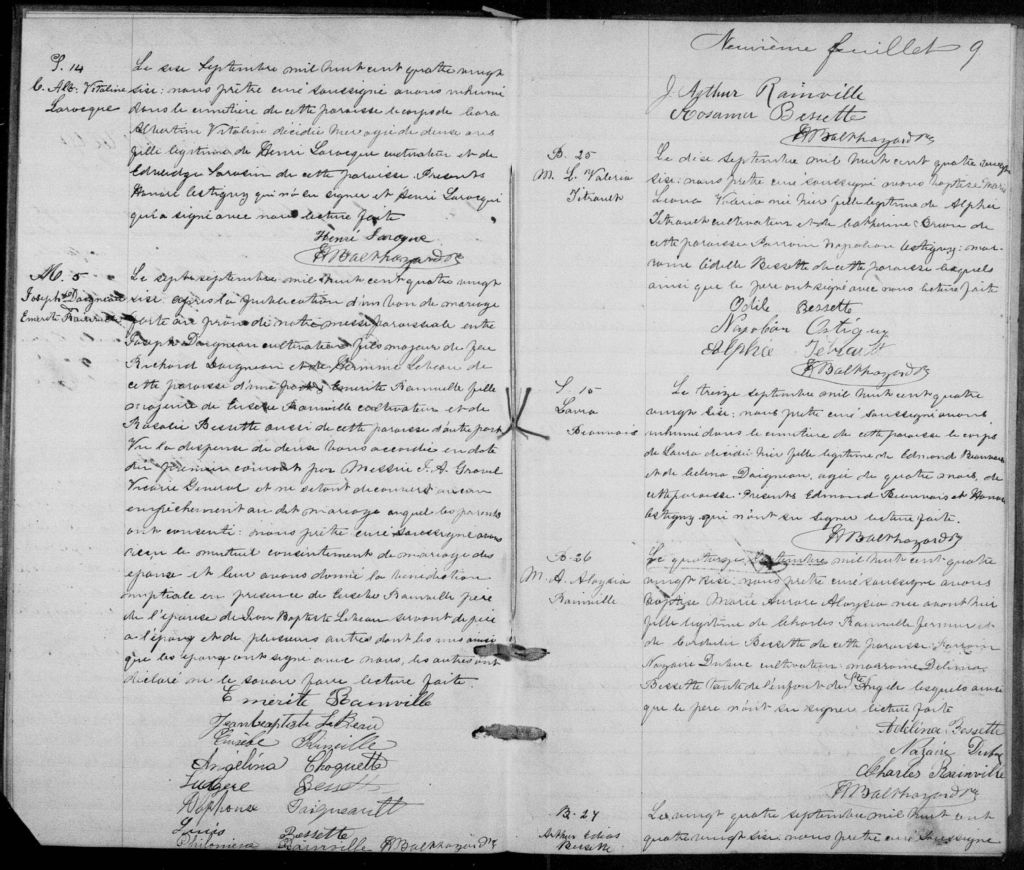 S. 14
C. Alb. Vitaline
Larocque
Le sise Septembre mil huit cent quatre vingt
sise: nous prêtre curé soussigné avons inhumé
dans le cimetière de cette paroisse le corps de Cora
Albertine Vitaline décédée hier agée de deux ans
fille légitime de Henri Larocque cultivateur et de
Edwidge Sarasin de cette paroisse. Présents
Honoré Astiguy qui n'a su signer et Henri Larocque
qui a signé avec nous lecture faite
Henri Laroque
Balthazard Ptr
M. 5
Joseph Daigneau
Emerite Rainville
Le sept septembre mil huit cent quatre vingt
sise après la publication d'un ban de mariage
faite au prône de notre messe paroissiale entre
Joseph Daigneau cultivateur fils majeur de feu
Richard Daigneau et de Lebeau de
cette paroisse d'une part, Emerite Rainville fille
majeure de Eusèbe Rainville cultivateur et de
Rosalie Bessette aussi de cette paroisse d'autre part
Vu la dispense de deux bans accordée en date
du premier courant par Messire A. Gravel
Vicaire Général et ne s'étant découvert aucun
empêchement au dit mariage auquel les parents
ont consenti: nous prêtre curé soussigné avons
reçu le mutuel consentement de mariage des
époux et leur avons donné la bénédiction
nuptiale en présence de Eusèbe Rainville père
de l'épouse de Jean Baptiste Lebeau servant de père
à l'époux et de plusieurs autres dont les uns ainsi
que les époux ont signé avec nous, les autres ont
déclaré ne le savoir faire lecture faite.
Emérite Rainville
Jeanbaptiste LeBeau
Eusèbe Rainville
Angélina Choquette
Ludgere Bessette
Alphonse Daigneault
Bessette
Philomène Rainville Balthazard Ptr
Neuvième feuillet 9
J. Arthur Rainville
Rosanna Bessette
Balthazard Ptr
B. 25
M. L. Valeria
Tétrault
Le dise septembre mil huit cent quatre vingt
sise: nous prêtre curé soussigné avons baptisé Marie
Leona Valeria née hier fille légitime de Alphée
Tétrault cultivateur et de Catherine de
cette paroisse Parrain Napoléon Astiguy: mar-
raine Odille Bessette de cette paroisse lesquels
ainsi que le père ont signé avec nous lecture faite
Odile Bessette
Napoléon Astiguy
Alphée Tétrault
Balthazard Ptr
S. 15
Laura
Beauvais
Le treize septembre mil huit cent quatre
vingt sise: nous prêtre curé soussigné avons
inhumé dans le cimetière de cette paroisse le corps
de Laura décédée hier fille légitime de Edmond Beauvais
et de Celina Daigneau, agée de quatre mois, de
cette paroisse. Présents Edmond Beauvais et Honoré
Astiguy qui n'ont su signer lecture faite.
Balthazard Ptr
B. 26
M. A. Aloysia
Rainville
Le quatorze septembre mil huit cent quatre
vingt sise: nous prêtre curé soussigné avons
baptisé Marie Aurore Aloysia née avant hier
fille légitime de Charles Rainville fermier et
de Cordelie Bessette de cette paroisse. Parrain
Nazaire Dubuc cultivateur: marraine Delima
Bessette tante de l'enfant de Ste Angèle lesquels ainsi
que le père n'ont su signer lecture faite
Adelina Bessette
Nazaire Dubuc
Charles Rainville
Balthazard Ptr
B. 27
Arthur Elias
Bessette
Le vingt quatre septembre mil huit cent
quatre vingt sise nous prêtre curé soussigné